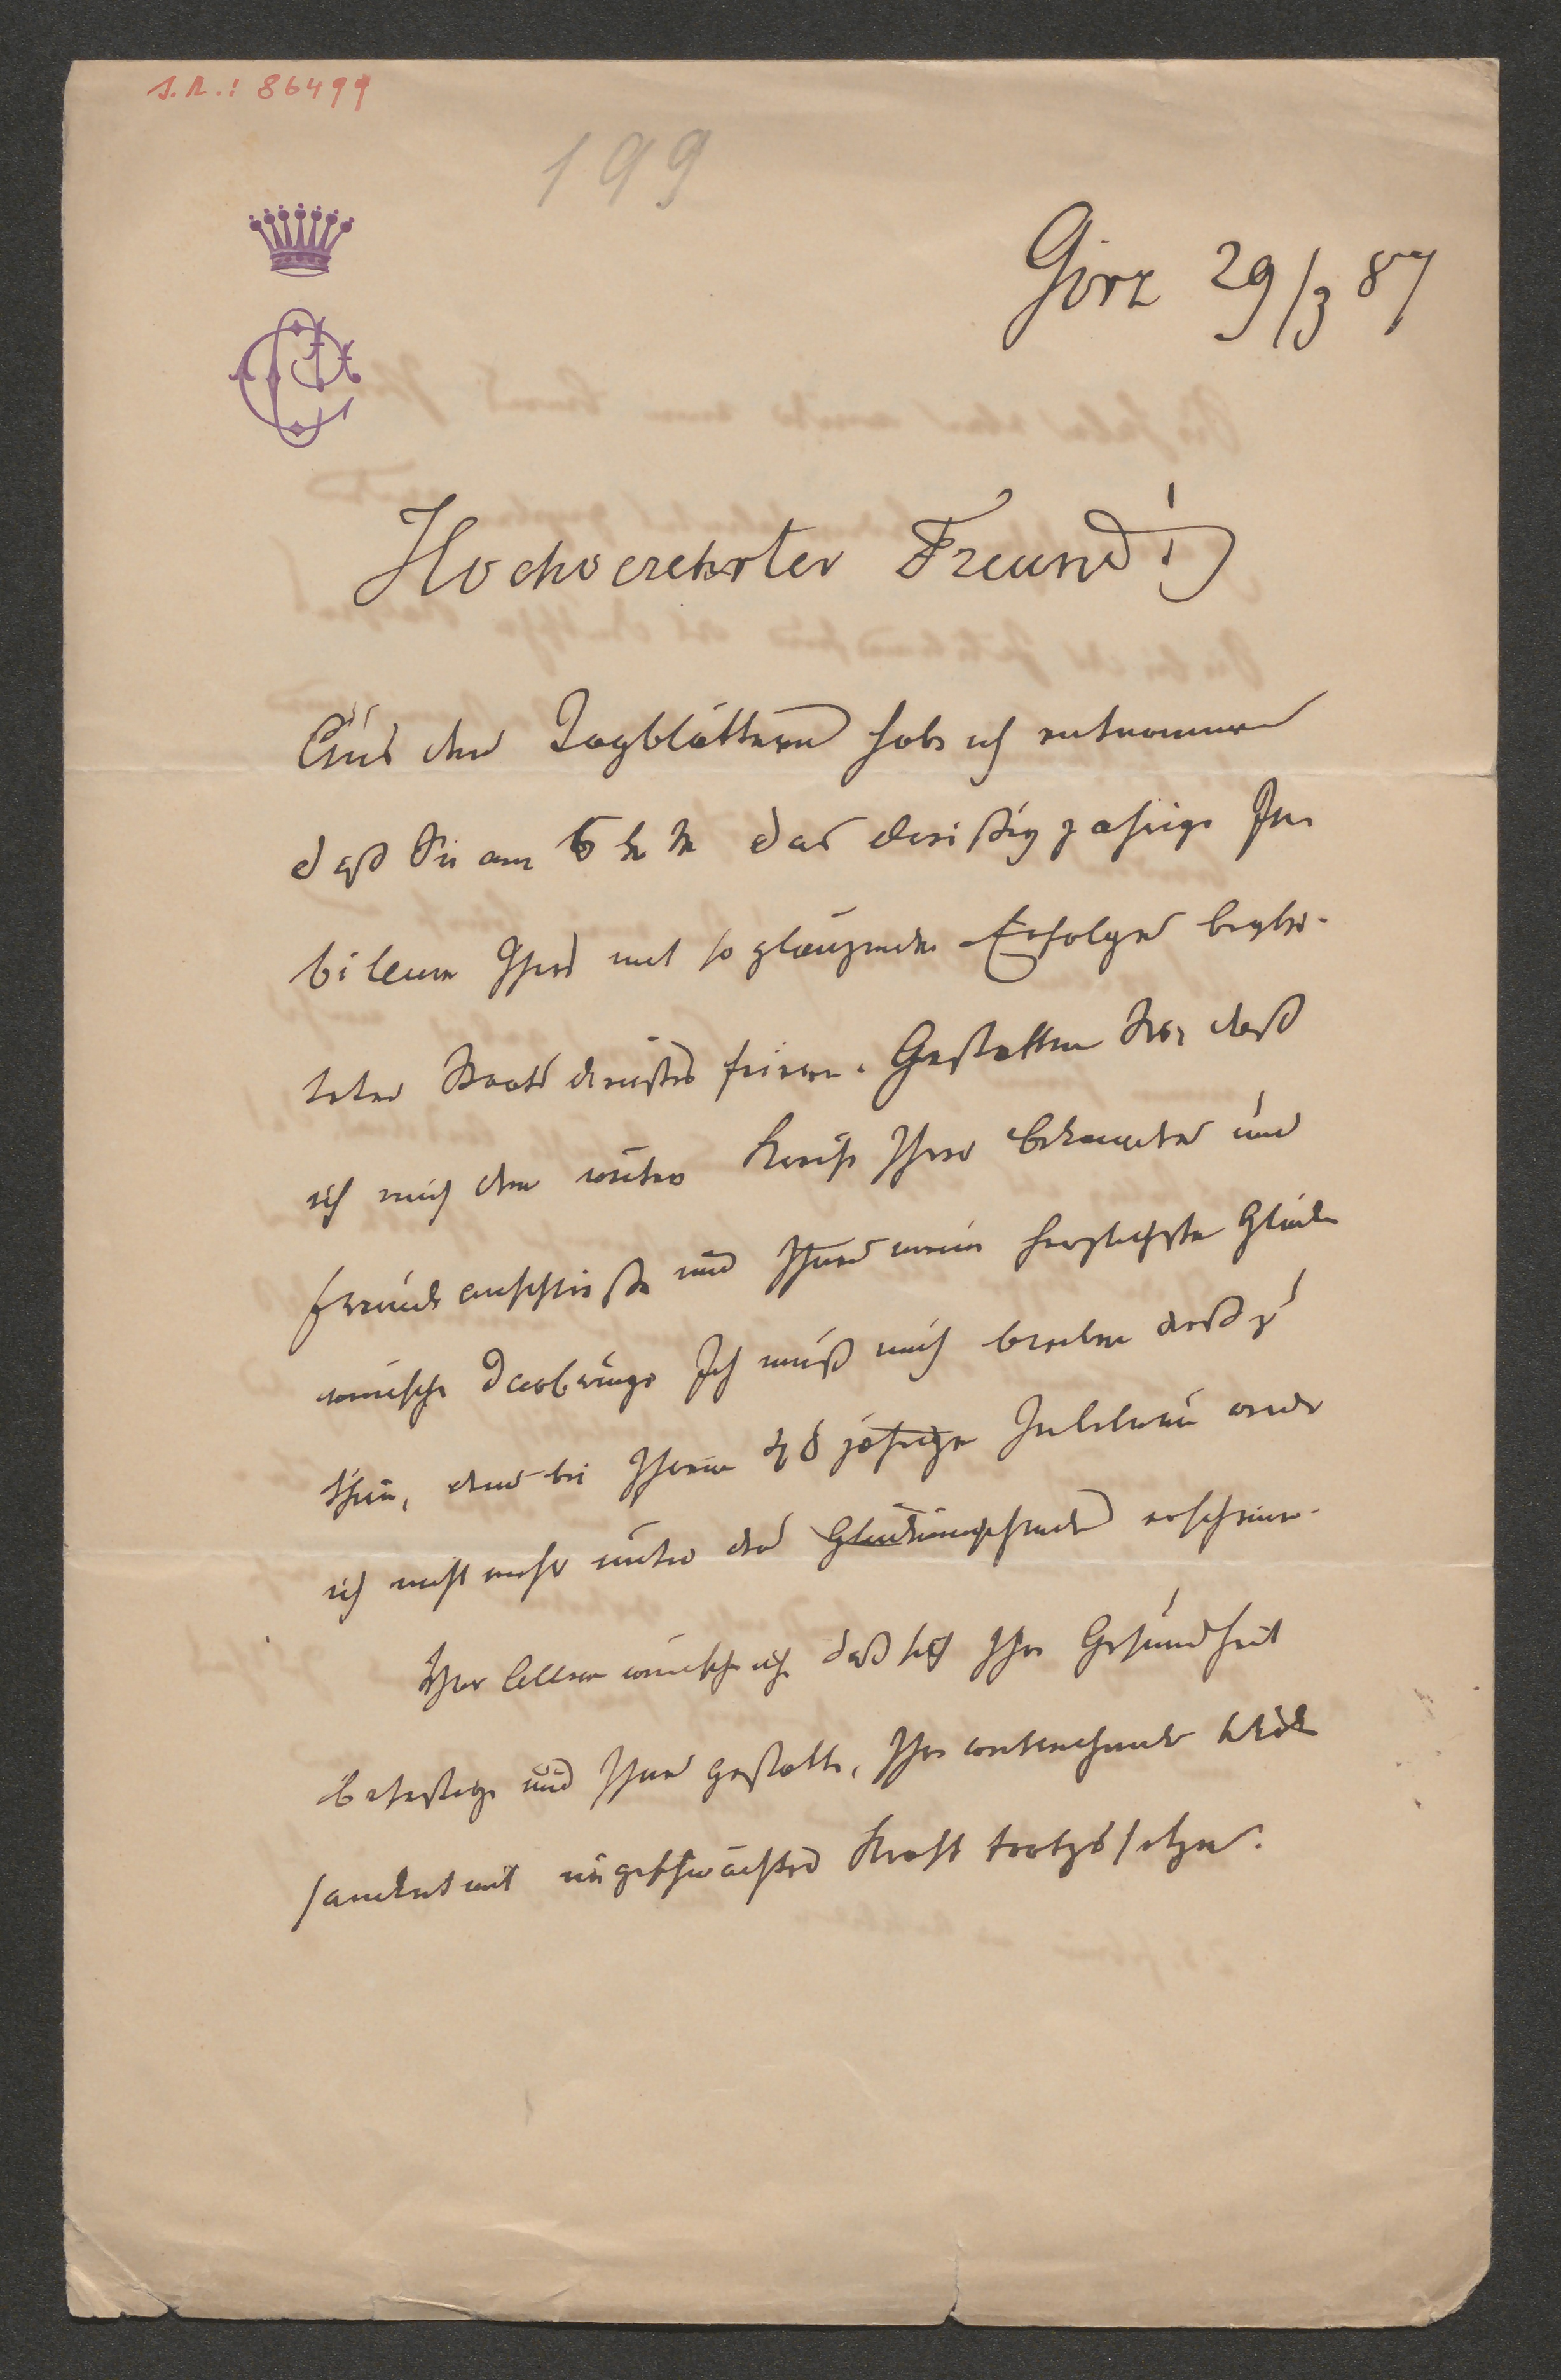 J.N.: 86499
199
Görz 29/3 87
Hochverehrter Freund!
Aus den Tagblättern habe ich entnommen
daß Sie am 6 das dreißigjährige Ju
bileum Ihres mit so glänzenden Erfolgen beglei-
teten Staatsdienstes feiern. Gestatten Sie, daß
ich mich dem weiten Kreise Ihrer Bekannten und
Freunde anschließe und Ihnen meine herzlichsten Glück
wünsche darbringe Ich muß mich beeilen dieß zu
thun, denn bei Ihrem jährigen Jubileum werde
ich nicht mehr unter den Glückwünschenden erscheinen.
Vor Allem wünsche ich daß sich Ihre Gesundheit
befestige und Ihnen gestatte, Ihre
mit ungeschwächter Kraft fortzusetzen.